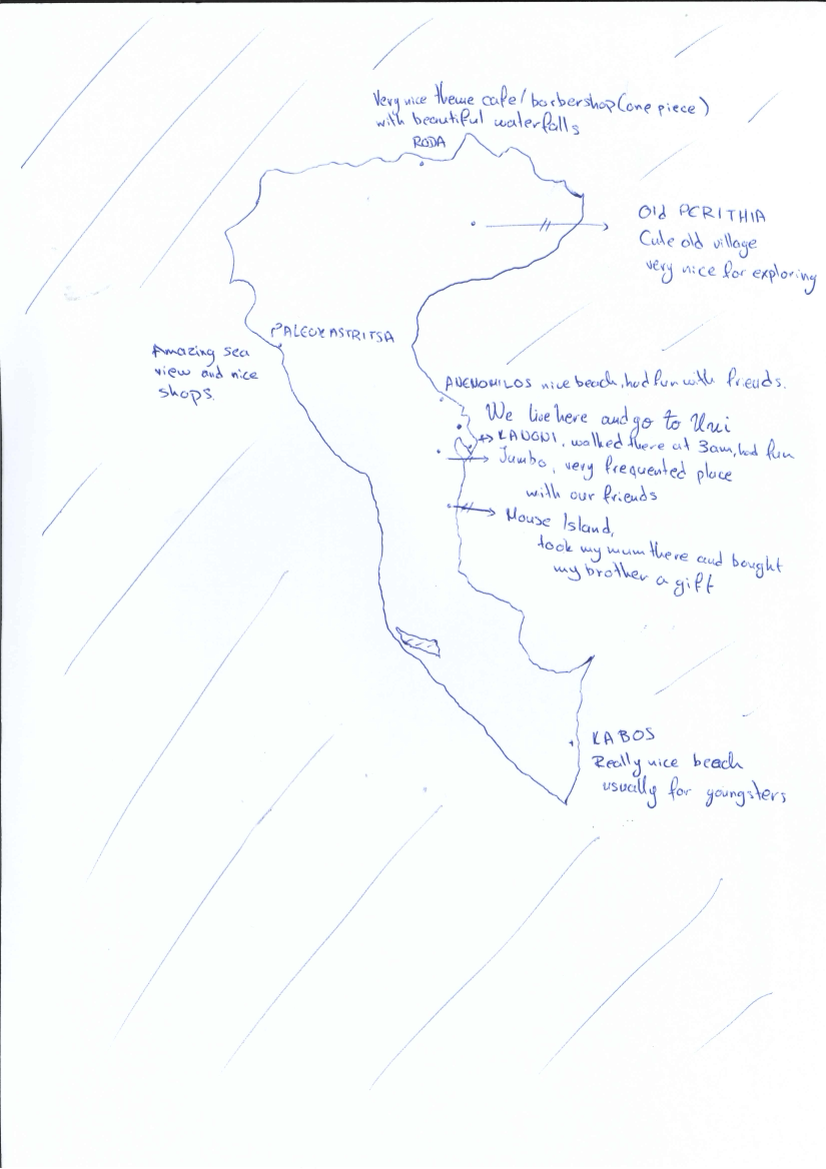 Very nice theme cafe/barbershop (one piece)
with beautiful waterfalls
RODA
Old PERITHIA
Cute old village
very nice for exploring
PALEOKASTRITSA
Amazing sea
view and nice
shops.
ANEMOMILOS nice beach, had fun with friends.
We live here and go to Uni
KANONI, walked there at 3am, had fun
Jumbo, very frequented place
with our friends
Mouse Island,
took my mum there and bought
my brother a gift
KABOS
Really nice beach
usually for youngsters